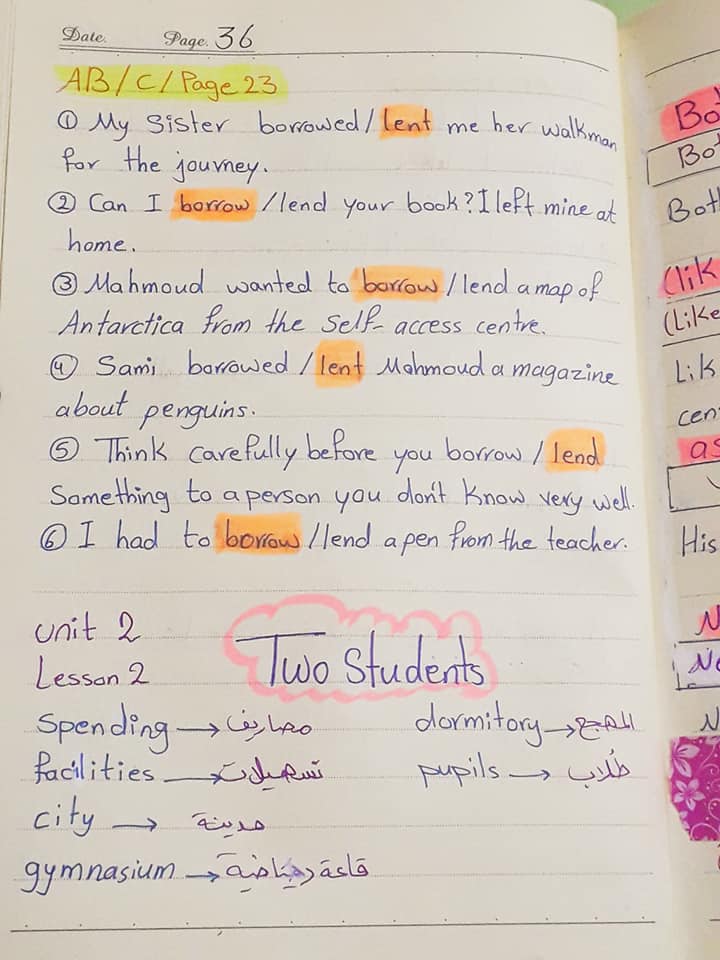 Date. Page. 36
AB/C/Page 23
① My Sister borrowed/lent me her walkman
for the journey.
② Can I borrow/lend your book? I left mine at
home.
③ Mahmoud wanted to borrow/lend a map of
Antarctica from the self-access centre.
④ Sami borrowed/lent Mahmoud a magazine
about penguins.
⑤ Think carefully before you borrow/lend
Something to a person you don't know very well.
⑥ I had to borrow/lend a pen from the teacher.
unit 2
Lesson 2
Two Students
Spending → مصاريف
dormitory → المهجع
facilities → تسهيلات
pupils → طُلاب
city → مدينة
gymnasium → قاعة رياضية
Bot
Both
Lik
cen
as
His